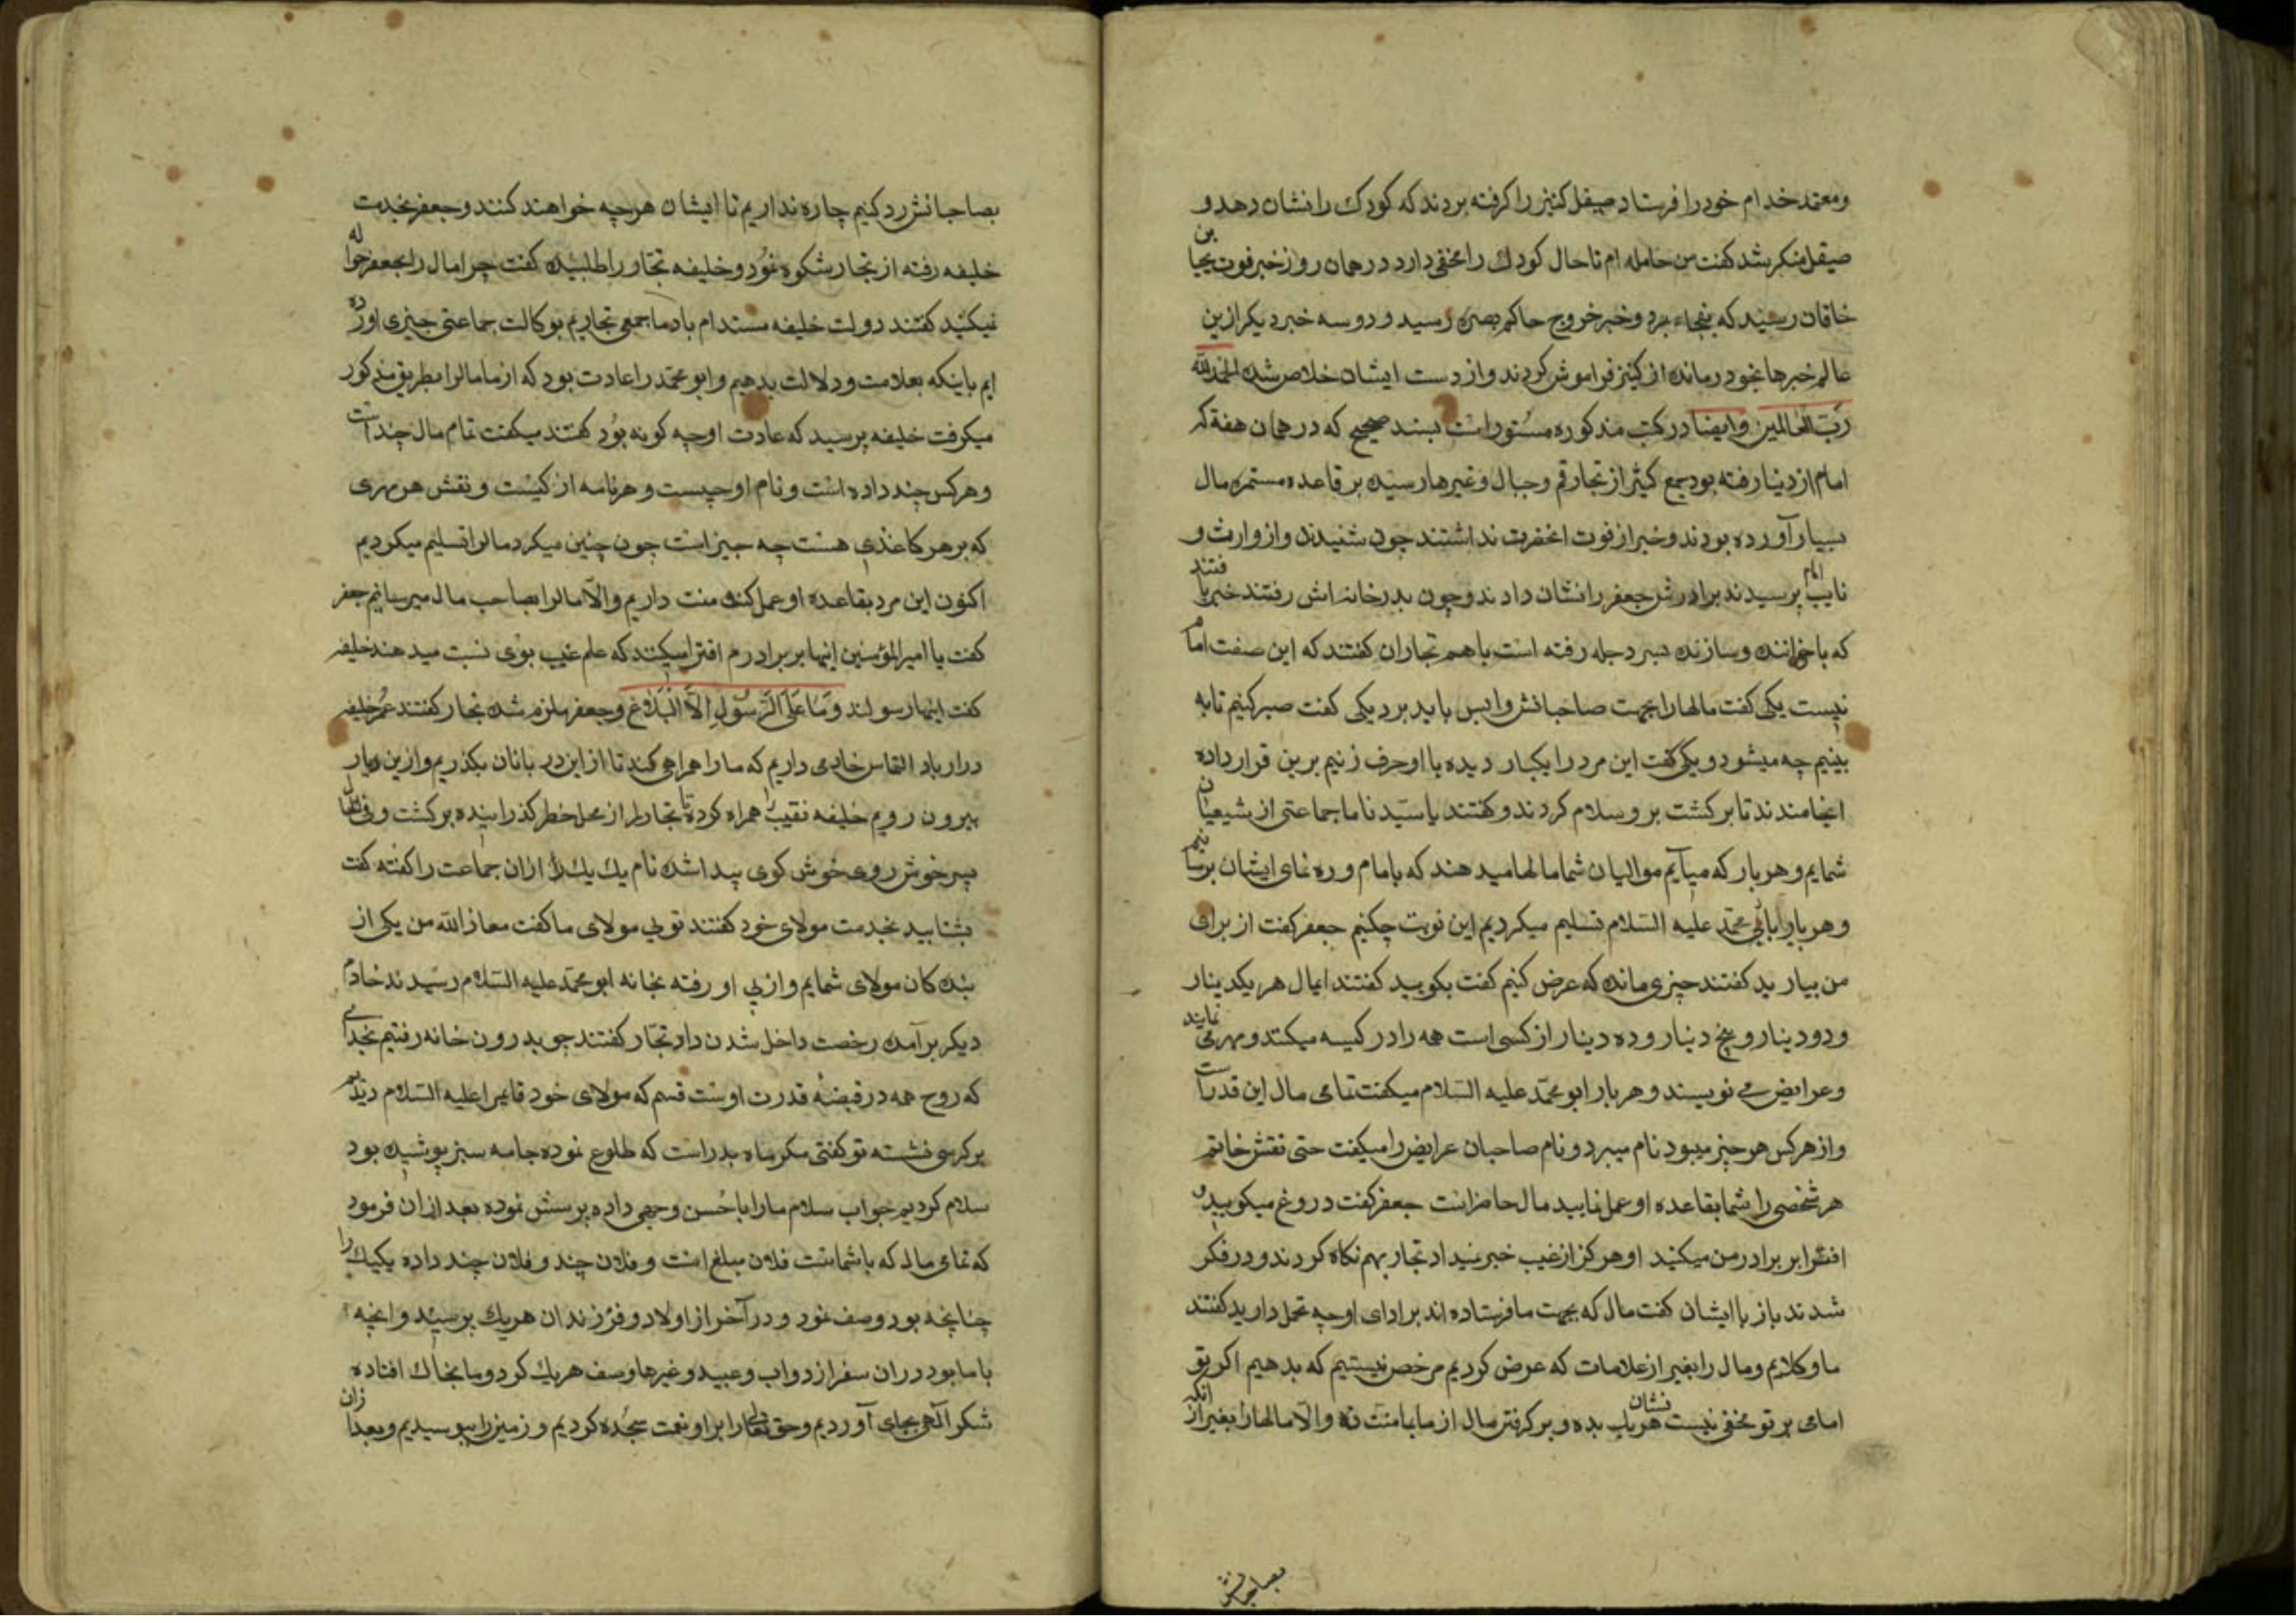 ومعتمد خدام خود را فرستاد صیقل کنیز را گرفته بردند که کودک را نشان دهد و
صیقل منکر شد گفت من حامله ام تا حال کودک را مخفی دارد در همان روز خبر فوت یحیا بن
خاقان رسید که بفجاءه مرد و خبر خروج حاکم بصره رسید و دو سه خبر دیکر ازین
عالم خبرها بخود درمانده از کنیز فراموش کردند و از دست ایشان خلاص شده الحمدلله
رب العالمین وایضا در کتب مذکوره مستور است بسند صحیح که در همان هفته که
امام از دنیا رفته بود جمع کثیر از تجار قم و جبال و غیرها رسیده بر قاعده مستمره مال
بسیار آورده بودند و خبر از فوت انحضرت نداشتند چون شنیدند و از وارث و
نایب امام پرسیدند برادرش جعفر را نشان دادند و چون بدر خانه اش رفتند خبر یافتند
که با خوانند و سازنده بسر دجله رفته است با هم تجاران کفتند که این صفت امام
نیست یکی گفت مالها را بجهت صاحبانش واپس باید برد یکی کفت صبر کنیم تا به
بینیم چه میشود و یکی گفت این مرد را یکبار دیده با او حرف زنیم برین قرار داده
انجا ماندند تا برکشت برو سلام کردند و کفتند یا سیدنا ما جماعتی از شیعیان
شمایم و هر بار که میآیم موالیان شما مالها میدهند که بامام و ره نمای ایشان برسانیم
و هر بار بابی محمد علیه السلام تسلیم میکردیم این نوبت چکنیم جعفر کفت از برای
من بیارید کفتند چیزی مانده که عرض کنیم کفت بکویید کفتند ایمال هر یکدینار
و دو دینار و پنج دینار و ده دینار از کسی است همه را در کیسه میکنند و مهر می نمایند
و عرایض می نویسند و هر بار ابو محمد علیه السلام میکفت تمامی مال این قدر است
و از هر کس هر چیز میبود نام میبرد و نام صاحبان عرایض را میکفت حتی نقش خاتم
هر شخصی را شما بقاعده او عمل نمایید مال حاضر است جعفر کفت دروغ میکویید و
افترا بر برادر من میکنید او هرکز از غیب خبر نمیداد تجار بهم نکاه کردند و در فکر
شدند باز با ایشان کفت مال که بجهت ما فرستاده اند بر ادای او چه تحمل دارید کفتند
ما وکلایم و مال را بغیر از علامات که عرض کردیم مرخص نیستیم که بدهیم اکر تو
امامی بر تو مخفی نیست نشان هر یک بده و بر کرفتن مال از ما بما منت نه و الا مالها را بغیر از انکه
بصاحبانش
بصاحبانش رد کنیم چاره نداریم تا ایشان هر چه خواهند کنند و جعفر بخدمت
خلیفه رفته از تجار شکوه نمود و خلیفه تجار را طلبیده کفت چرا مال را بجعفر حواله
نمیکنید کفتند دولت خلیفه مستدام باد ما جمعی تجاریم بوکالت جماعتی چیزی آورده
ایم باینکه بعلامت و دلالت بدهیم و ابو محمد را عادت بود که از ما مالرا بطریق مذکور
میکرفت خلیفه پرسید که عادت او چه کونه بود کفتند میکفت تمام مال چند است
و هر کس چند داده است و نام او چیست و هر نامه از کیست و نقش هر مهری
که بر هر کاغذی هست چه چیز است چون چنین میکرد مالرا تسلیم میکردیم
اکنون این مرد بقاعده او عمل کند منت داریم والا مالرا بصاحب مال میرسانیم جعفر
کفت یا امیرالمؤمنین اینها بر برادرم افترا میکنند که علم غیب بوی نسبت میدهند خلیفه
کفت اینها رسولند وَمَا عَلَى الرَّسُولِ اِلَّا الْبَلَاغ و جعفر ملزم شده تجار کفتند عمر خلیفه
دراز باد التماس خادمی داریم که ما را همراهی کند تا از این در بانان بکذریم و ازین دیار
بیرون رویم خلیفه نقیب را همراه کرده تا تجار را از محل خطر کذرانیده برکشت و فی الحال
پسر خوش روی خوش کوی پیدا شده نام یك یك را ازان جماعت را کفته کفت
بشتابید بخدمت مولای خود کفتند تویی مولای ما کفت معاذ الله من یکی از
بنده کان مولای شمایم و از پی او رفته بخانه ابو محمد علیه السلام رسیدند خادم
دیکر برآمده رخصت داخل شدن داد تجار کفتند چو بدرون خانه رفتیم بخدای
که روح همه در قبضه قدرت اوست قسم که مولای خود قایم را علیه السلام دیدیم
بر کرسی نشسته تو کفتی مکر ماه بدر است که طلوع نموده جامه سبز پوشیده بود
سلام کردیم جواب سلام ما را باحسن وجهی داده پرسش نموده بعد از ان فرمود
که تمامی مال که با شماست فلان مبلغ است و فلان چند و فلان چند داده یکیك را
چنانچه بود وصف نمود و در آخر از اولاد و فرزندان هر یك پرسید و انچه
با ما بود در ان سفر از دواب و عبید و غیرها وصف هر یك کرد و ما بخاك افتاده
شکر آلهی بجای آوردیم و حق تعالی را بر او نعمت سجده کردیم و زمین را ببوسیدیم و بعد ازان